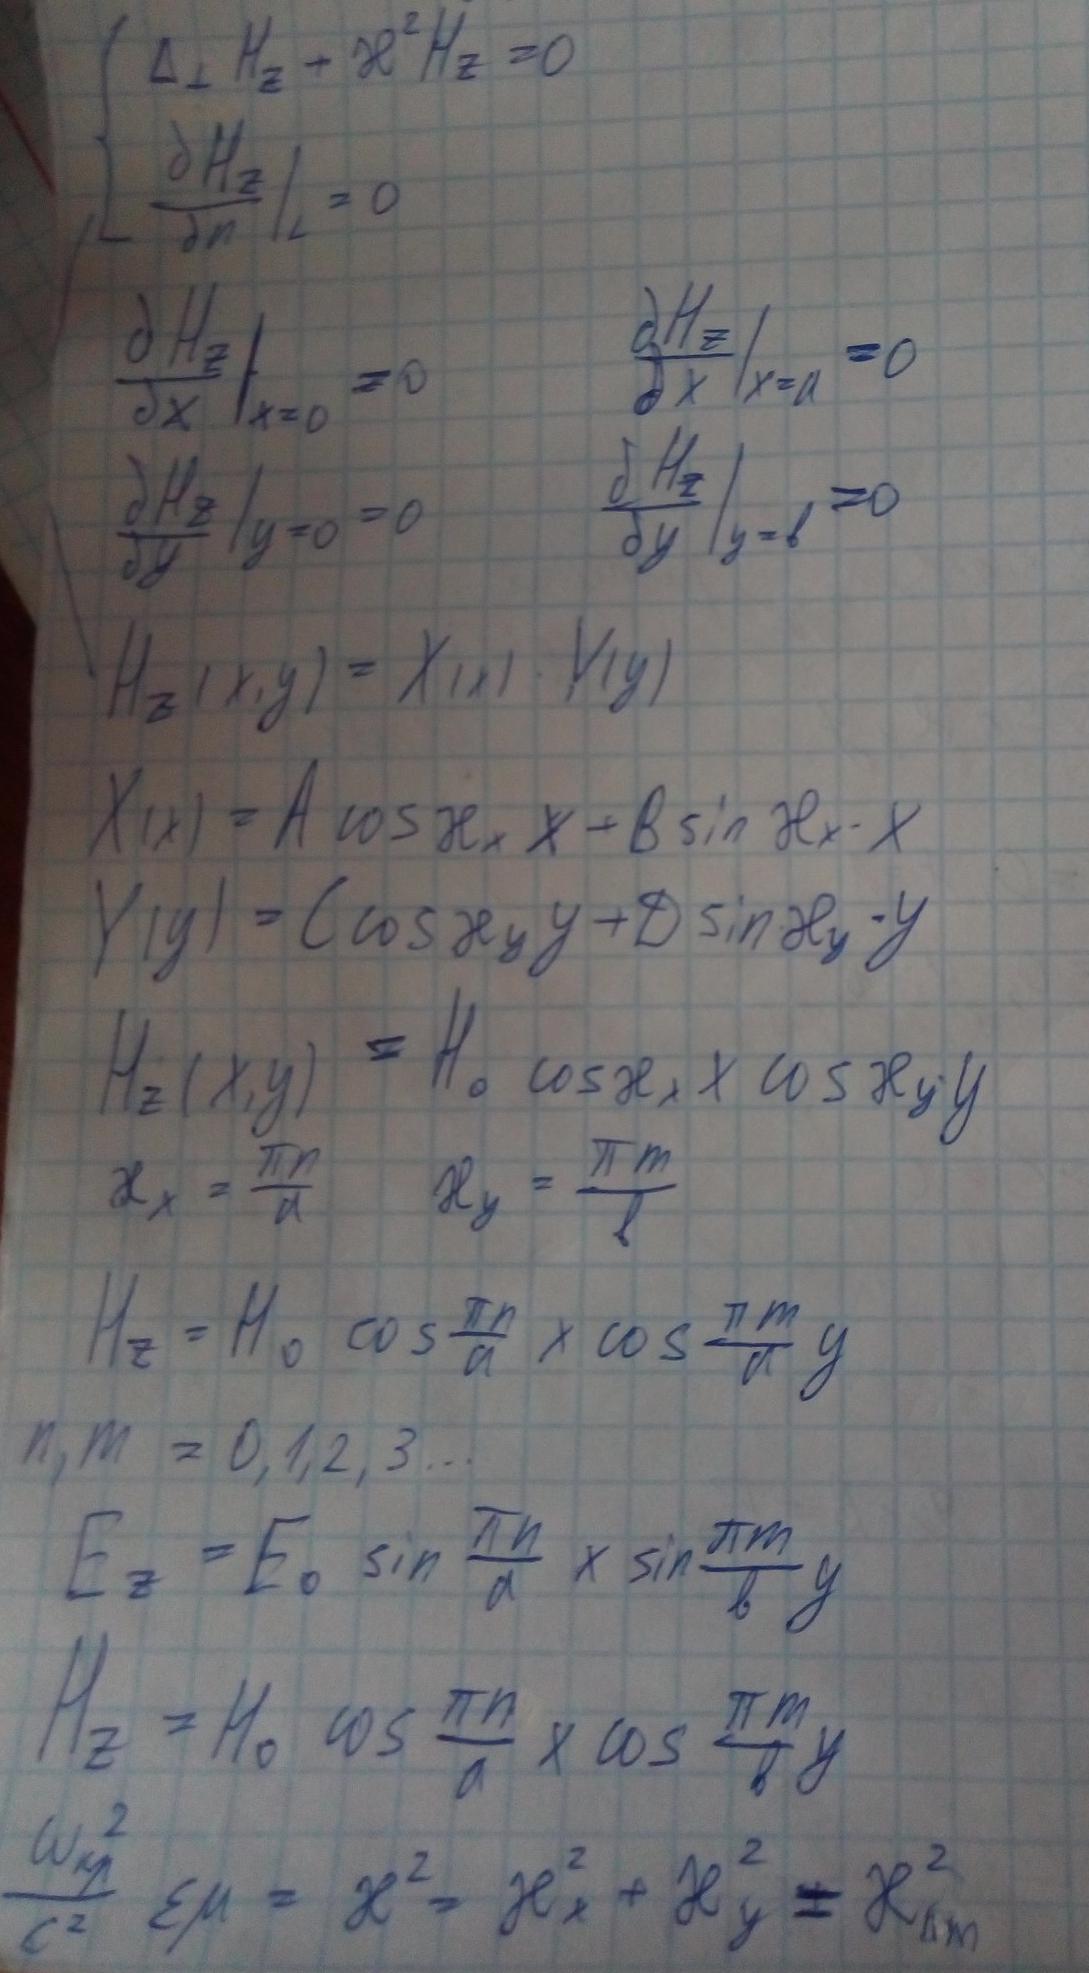 Δ⊥ H_z + ϰ² H_z = 0
∂H_z/∂n |_L = 0
∂H_z/∂x |_x=0 = 0   ∂H_z/∂x |_x=a = 0
∂H_z/∂y |_y=0 = 0   ∂H_z/∂y |_y=b = 0
H_z(x,y) = X(x) · Y(y)
X(x) = A cos ϰ_x x + B sin ϰ_x · x
Y(y) = C cos ϰ_y y + D sin ϰ_y · y
H_z(x,y) = H_0 cos ϰ_x x cos ϰ_y y
ϰ_x = πn/a   ϰ_y = πm/b
H_z = H_0 cos πn/a x cos πm/a y
n,m = 0,1,2,3...
E_z = E_0 sin πn/a x sin πm/b y
H_z = H_0 cos πn/a x cos πm/b y
ω_кр²/c² εμ = ϰ² = ϰ_x² + ϰ_y² = ϰ²_nm